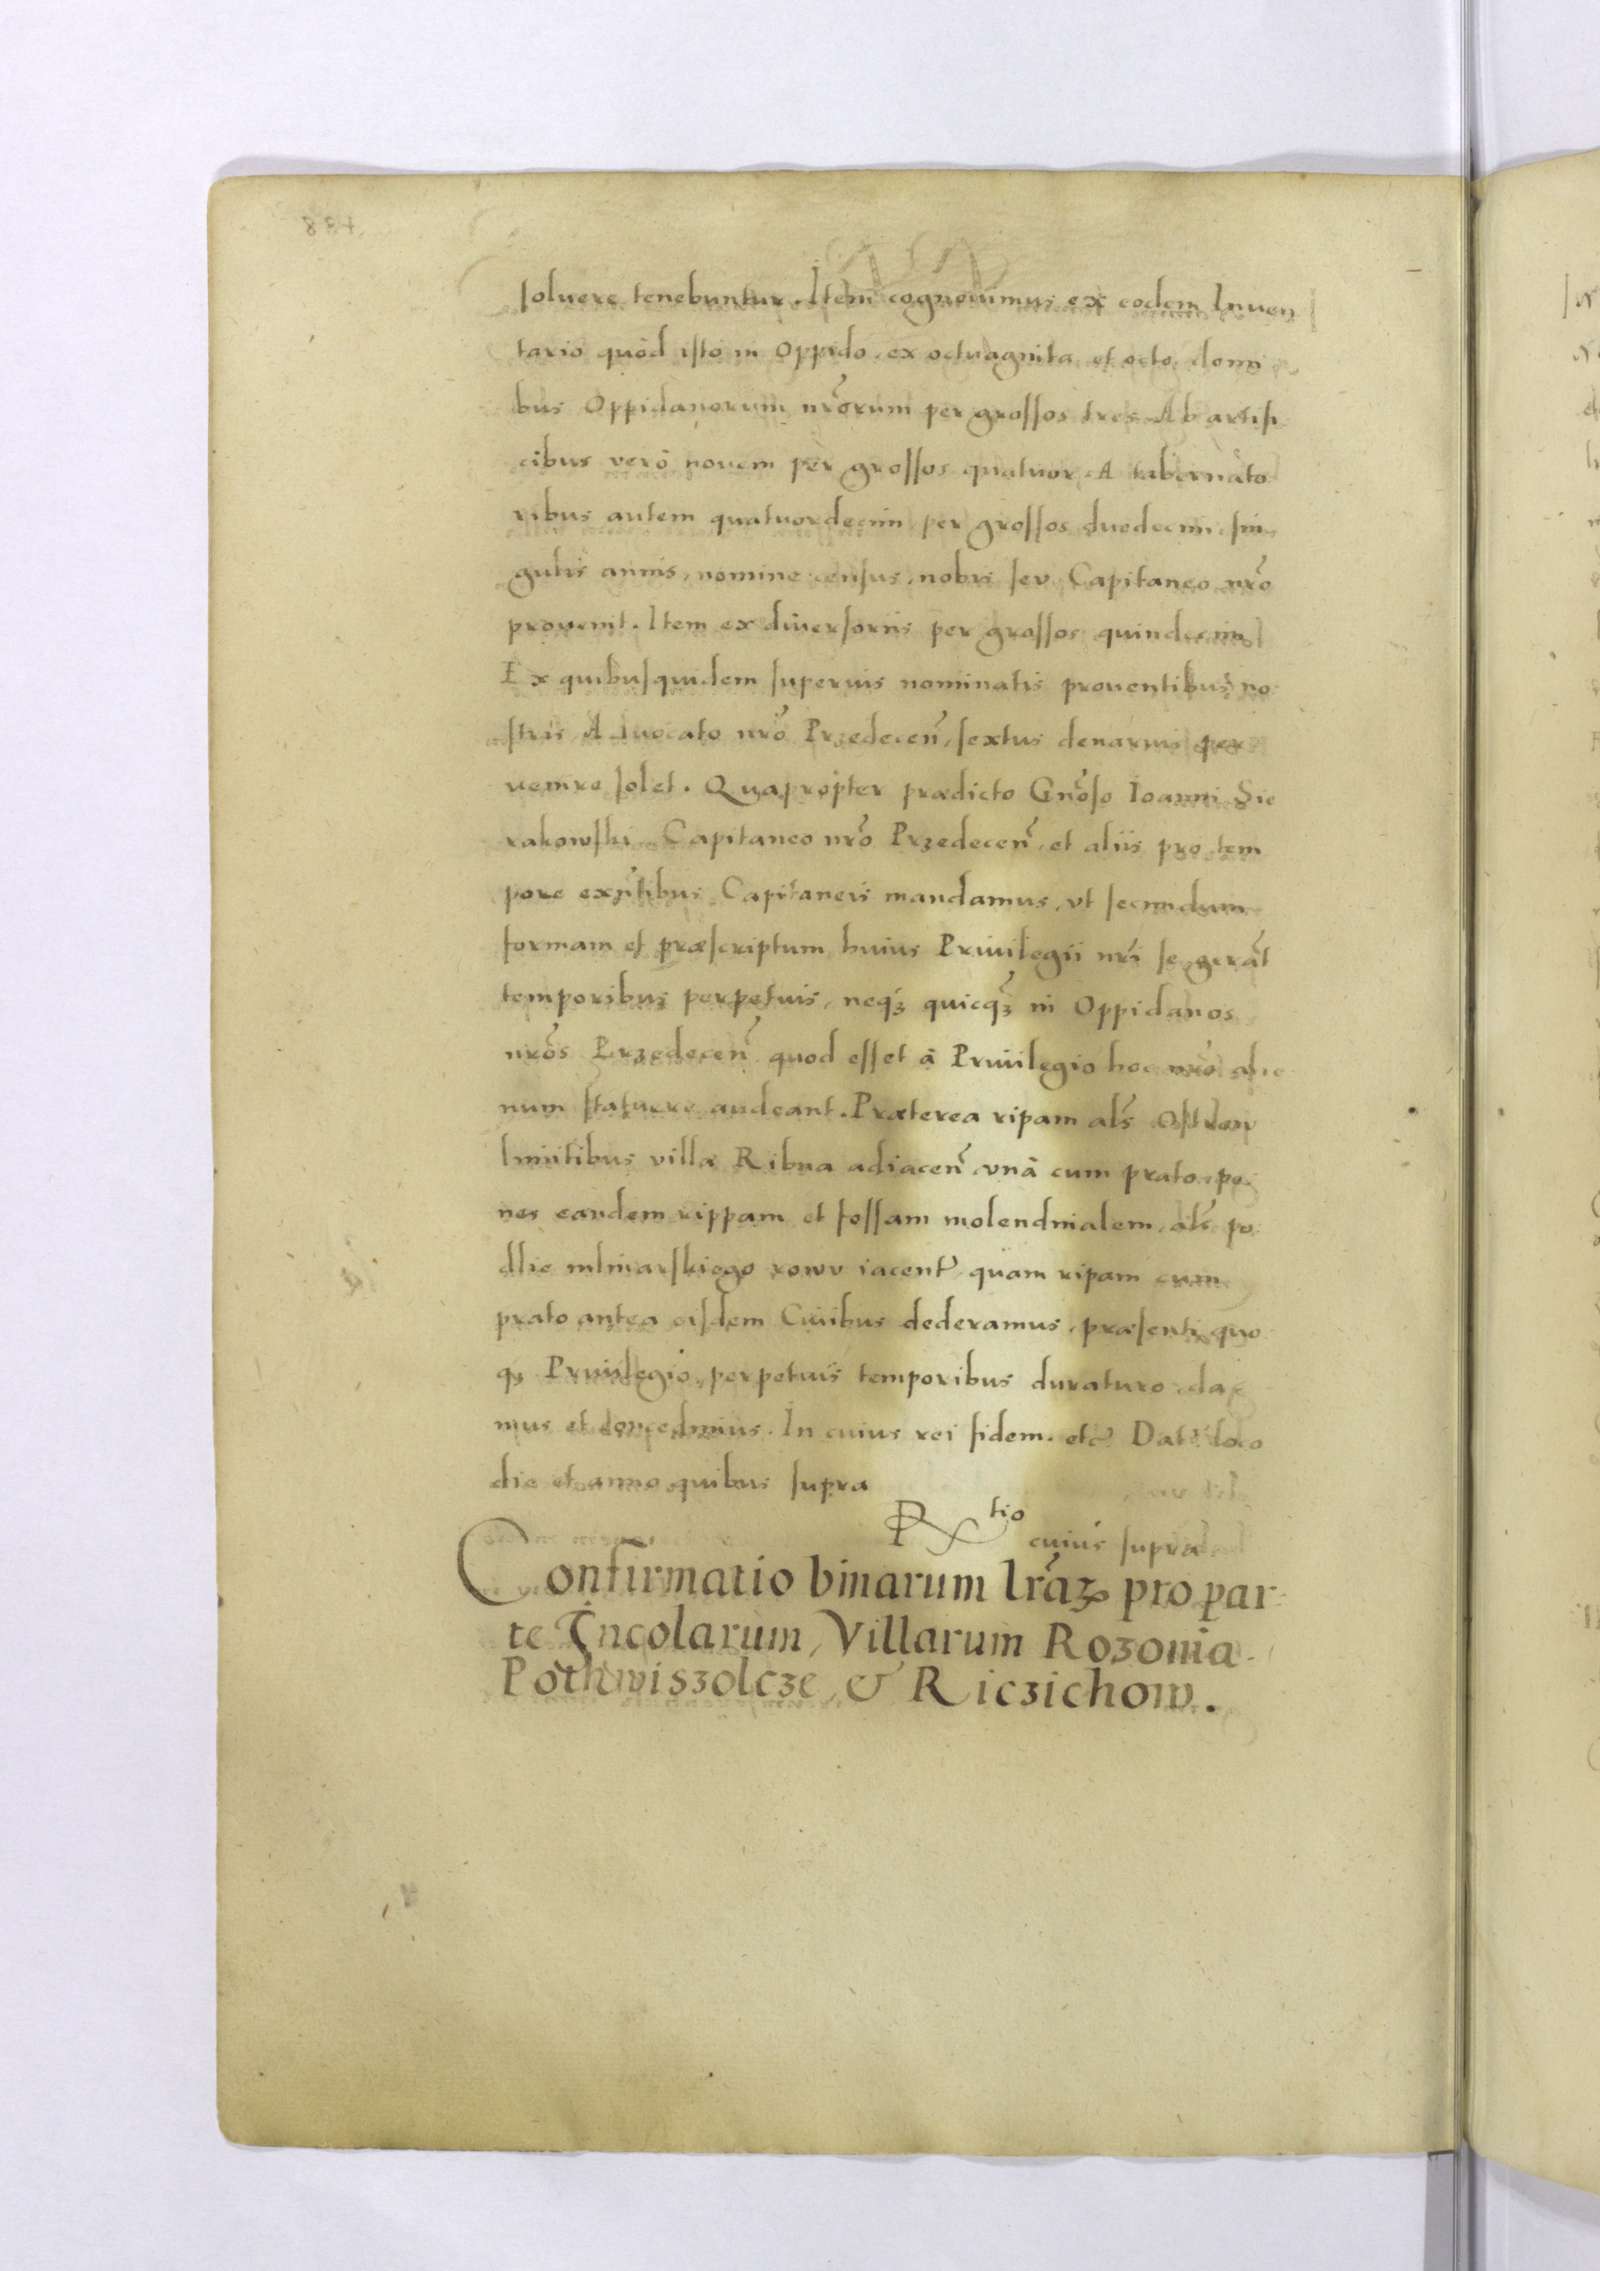 soluere tenebuntur. Item cognouimus ex eodem Inuen
tario quòd isto in Oppido, ex octuaginta et octo domi
bus Oppidanorum nrõrum per grossos tres Ab artifi
cibus verò nouem per grossos quatuor A tabernato
ribus autem quatuordecim per grossos duodecim sin
gulis annis, nomine census, nobis seu Capitaneo nrõ
prouenit. Item ex diuersoriis per grossos quindecim
Ex quibusquidem superius nominatis prouentibus no
stris Aduocato nrõ Przedecen̄, sextus denarius per
uenire solet. Quapropter prædicto Gnõso Ioanni Sie
rakowski Capitaneo nrõ Przedecen̄, et aliis pro tem
pore exñtibus Capitaneis mandamus, vt secundum
formam et præscriptum huius Priuilegii nrĩ se gerãt
temporibus perpetuis, neqʒ quicqʒ in Oppidanos
nrõs Przedecen̄ quod esset à Priuilegio hoc nrõ alie
num statuere audeant. Præterea ripam alš Ostrow
limitibus villæ Ribna adiacen̄ vnà cum prato pe
nes eandem rippam et fossam molendinalem, alš po
dlie mlinarskiego rowu iacent̃, quam ripam cum
prato antea eisdem Ciuibus dederamus, præsenti quo
qʒ Priuilegio, perpetuis temporibus duraturo da
mus et concedimus. In cuius rei fidem. etc̃ Dat̃ loco
die et anno quibus supra
Rtio
cuius supra
Confirmatio binarum lrãʒ pro par
te Incolarum, Villarum Rozonia
Pothwiszolcze, & Riczichow.